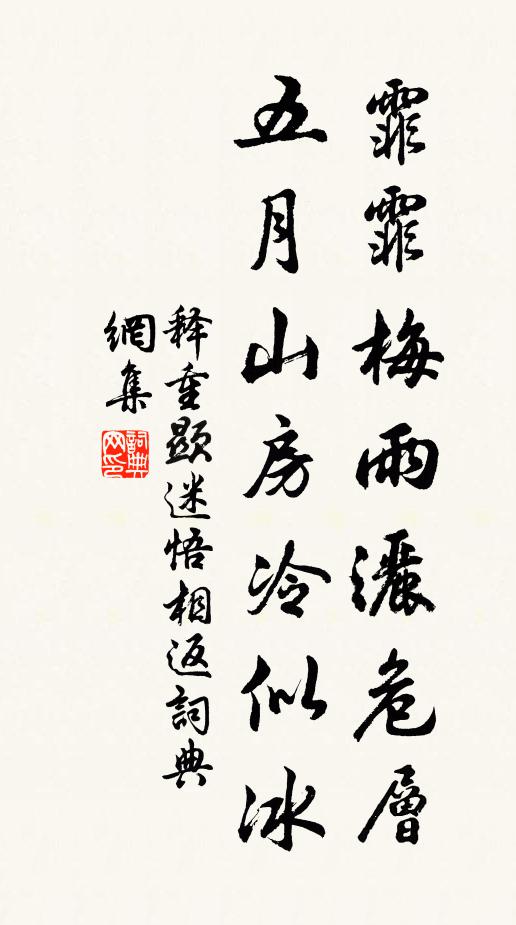 霏霏梅雨灑危層
五月山房冷似冰
释重顯迷悟相返詞典
網集
詞典網印